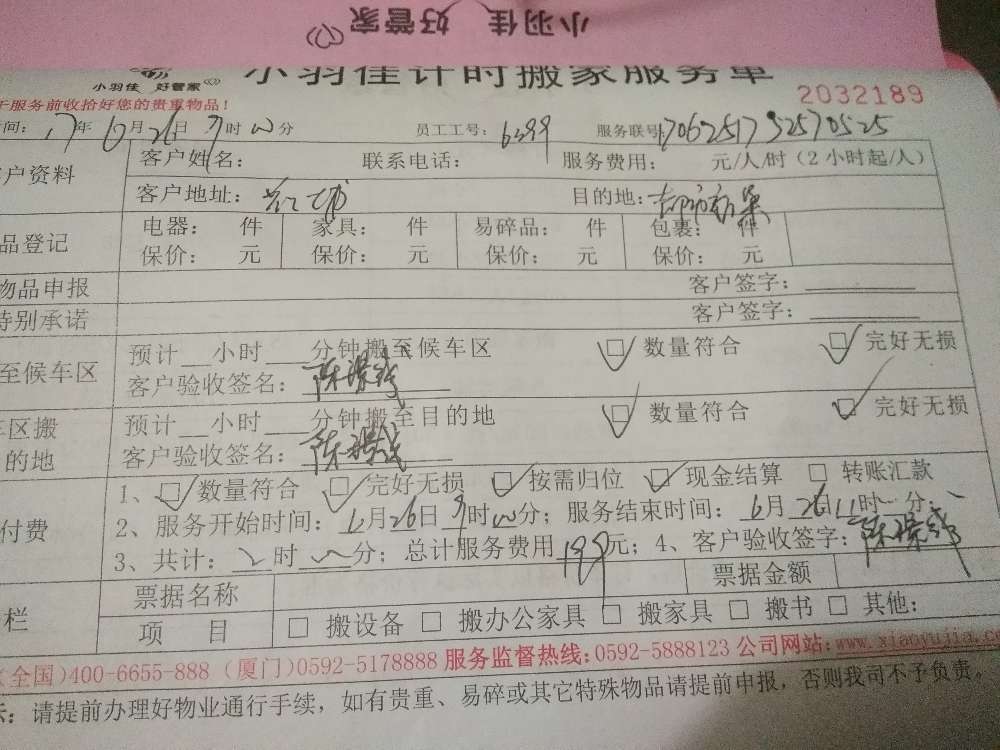 小羽佳 好管家
小羽佳计时搬家服务单
小羽佳 好管家
服务前收拾好您的贵重物品！
2032189
间：17年6月26日9时00分 员工工号：6399 服务联号：
户资料 客户姓名： 联系电话： 服务费用： 元/人/时（2小时起/人）
客户地址： 目的地：
品登记 电器： 件 家具： 件 易碎品： 件 包裹： 件
保价： 元 保价： 元 保价： 元 保价： 元
物品申报 客户签字：
特别承诺 客户签字：
至候车区 预计 小时 分钟搬至候车区 ☑ 数量符合 ☑ 完好无损
客户验收签名：
车区搬 预计 小时 分钟搬至目的地 ☑ 数量符合 ☑ 完好无损
的地 客户验收签名：
付费 1、☑数量符合 ☑完好无损 ☑按需归位 ☑现金结算 □ 转账汇款
2、服务开始时间：6月26日9时00分；服务结束时间：6月26日11时 分；
3、共计：2时 分；总计服务费用 元；4、客户验收签字：
栏 票据名称 票据金额
项 目 □ 搬设备 □ 搬办公家具 □ 搬家具 □ 搬书 □ 其他：
(全国)400-6655-888 (厦门)0592-5178888 服务监督热线：0592-5888123 公司网站：www.xiaoyujia.c
示：请提前办理好物业通行手续，如有贵重、易碎或其它特殊物品请提前申报，否则我司不予负责。